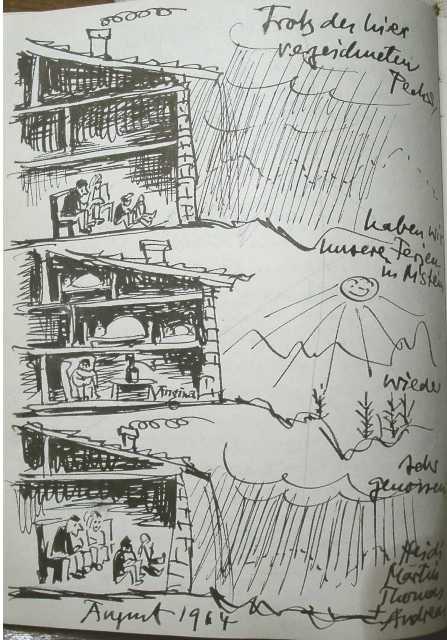 Trotz der hier
verzeichneten
haben wir
unsere Ferien
in
Angina
wieder
sehr
genossen
Heidi
Martin
Thomas
+ Andrea
August 1964